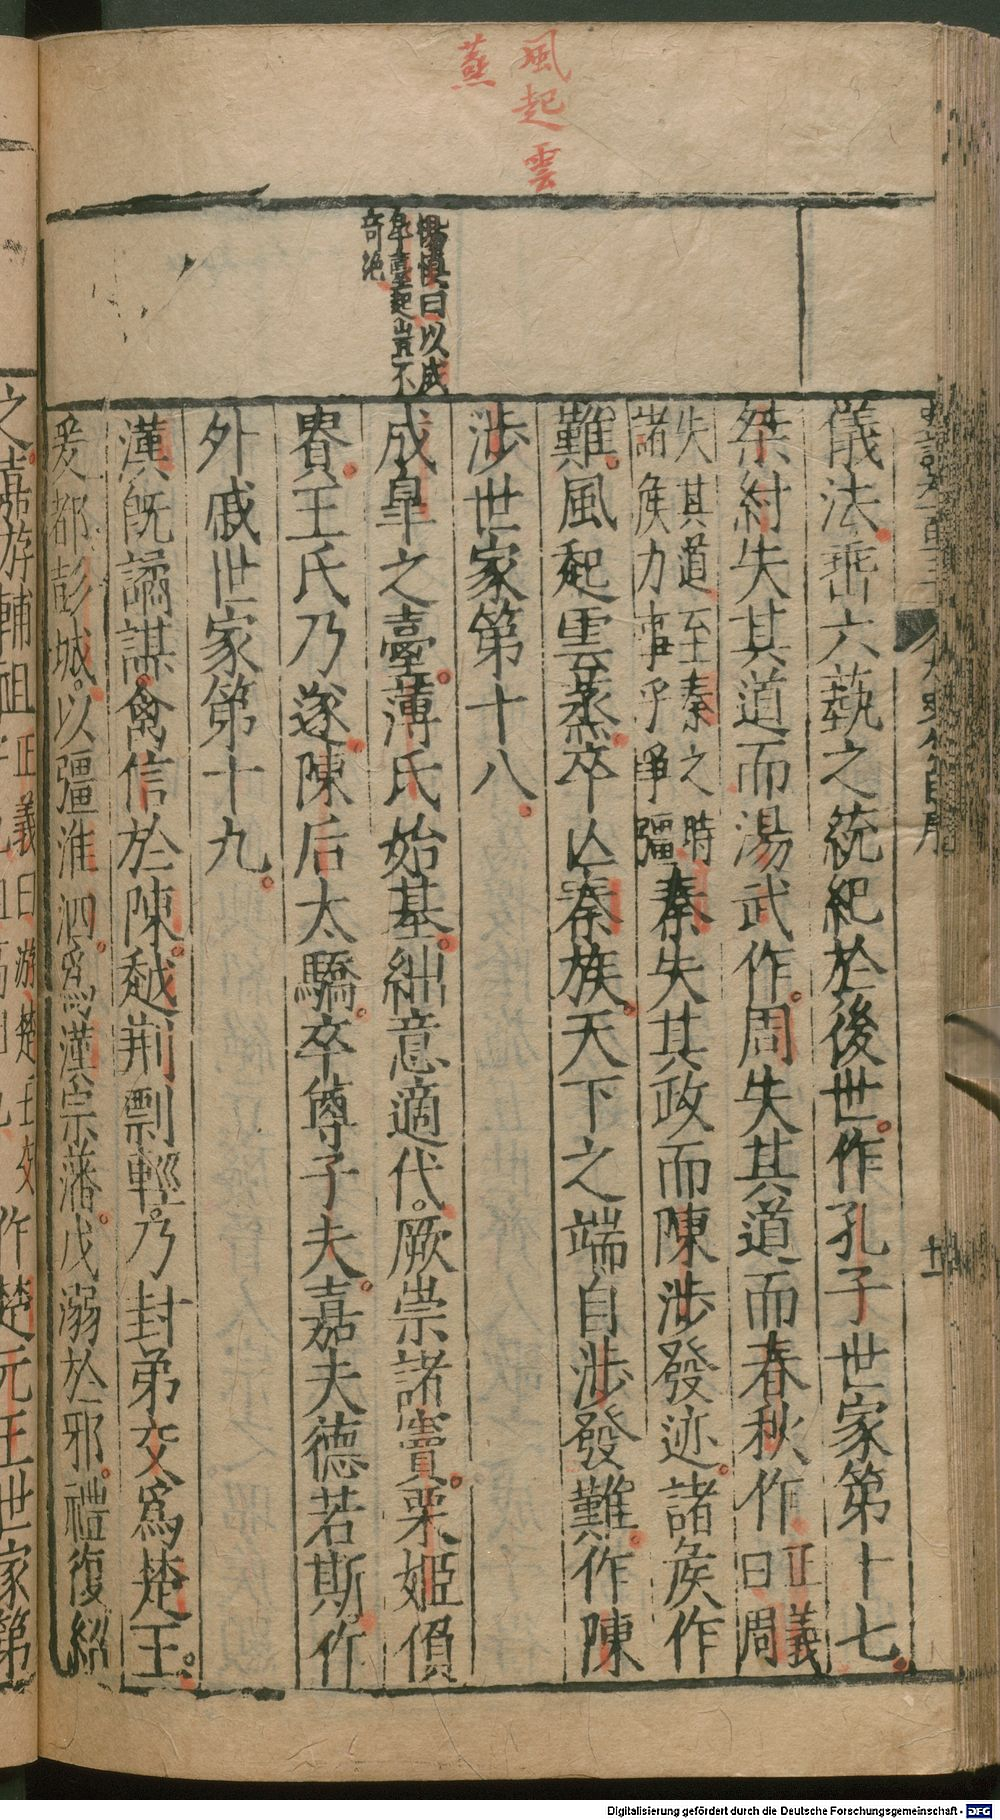 風起雲
蒸
楊慎曰以成
皐臺起豈不
奇絶
儀法垂六藝之統紀於後世。作孔子世家第十七。
桀紂失其道而湯武作。周失其道而春秋作正義曰周
失其道至秦之時諸矦力事乎爭彊秦失其政而陳涉發迹。諸矦作
難。風起雲蒸。卒亾秦族。天下之端自涉發難。作陳
涉世家第十八。
成皐之臺。薄氏始基。詘意適代。厥崇諸竇。栗姬偩
貴。王氏乃遂。陳后太驕。卒尊子夫。嘉夫德若斯。作
外戚世家第十九。
漢旣譎謀。禽信於陳。越荆剽輕。乃封弟交爲楚王。
爰都彭城。以彊淮泗。爲漢宗藩。戊溺於邪。禮復紹
之。嘉游輔祖正義曰游楚王交作楚元王世家第
十一
Digitalisierung gefördert durch die Deutsche Forschungsgemeinschaft - DFG